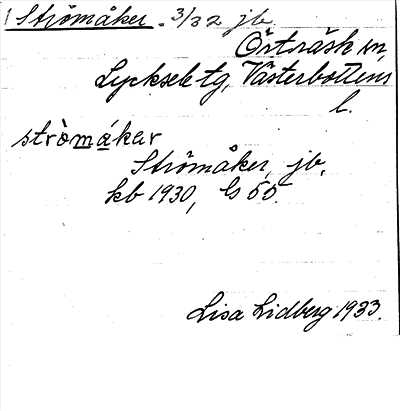 Strömåker. 3/32 jb.
Örträsk sn,
Lycksele tg, Västerbottens
l.
strò̀mákar
Strömåker, jb,
kb 1930, Ls 55.
Lisa Lidberg 1933.